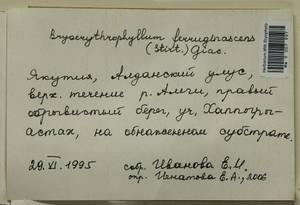 Bryoerythrophyllum ferruginascens
(Stirt.) Giac.
Якутия, Алданский улус,
верх. течение р. Амги, правый
обрывистый берег, уч. Хаппогры-
астах, на обнаженном субстрате.
29.VI.1995 собр. Иванова Е.И.
опр. Игнатова Е.А., 2006